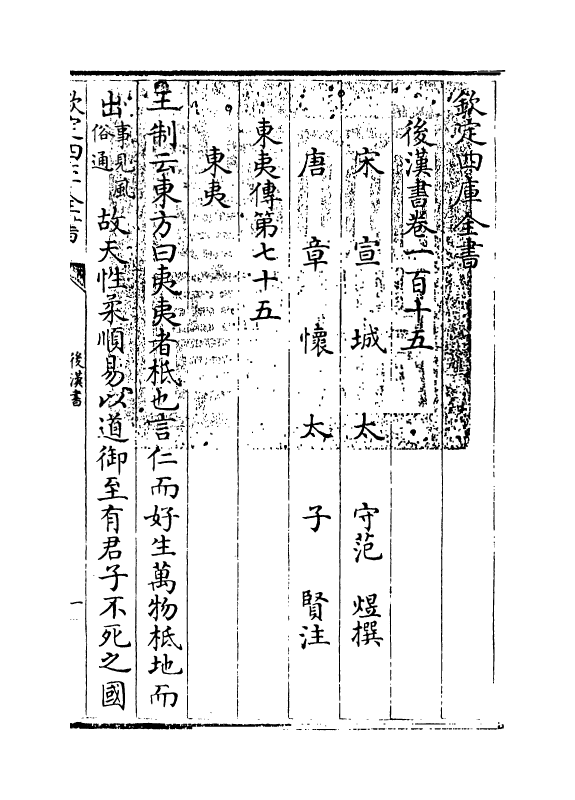 欽定四庫全書
後漢書卷一百十五
宋宣城太守范煜撰
唐章懷太子賢注
東夷傳第七十五
東夷
王制云東方曰夷夷者柢也言仁而好生萬物柢地而
出事見風俗通故天性柔順易以道御至有君子不死之國
欽定四庫全書
後漢書
一